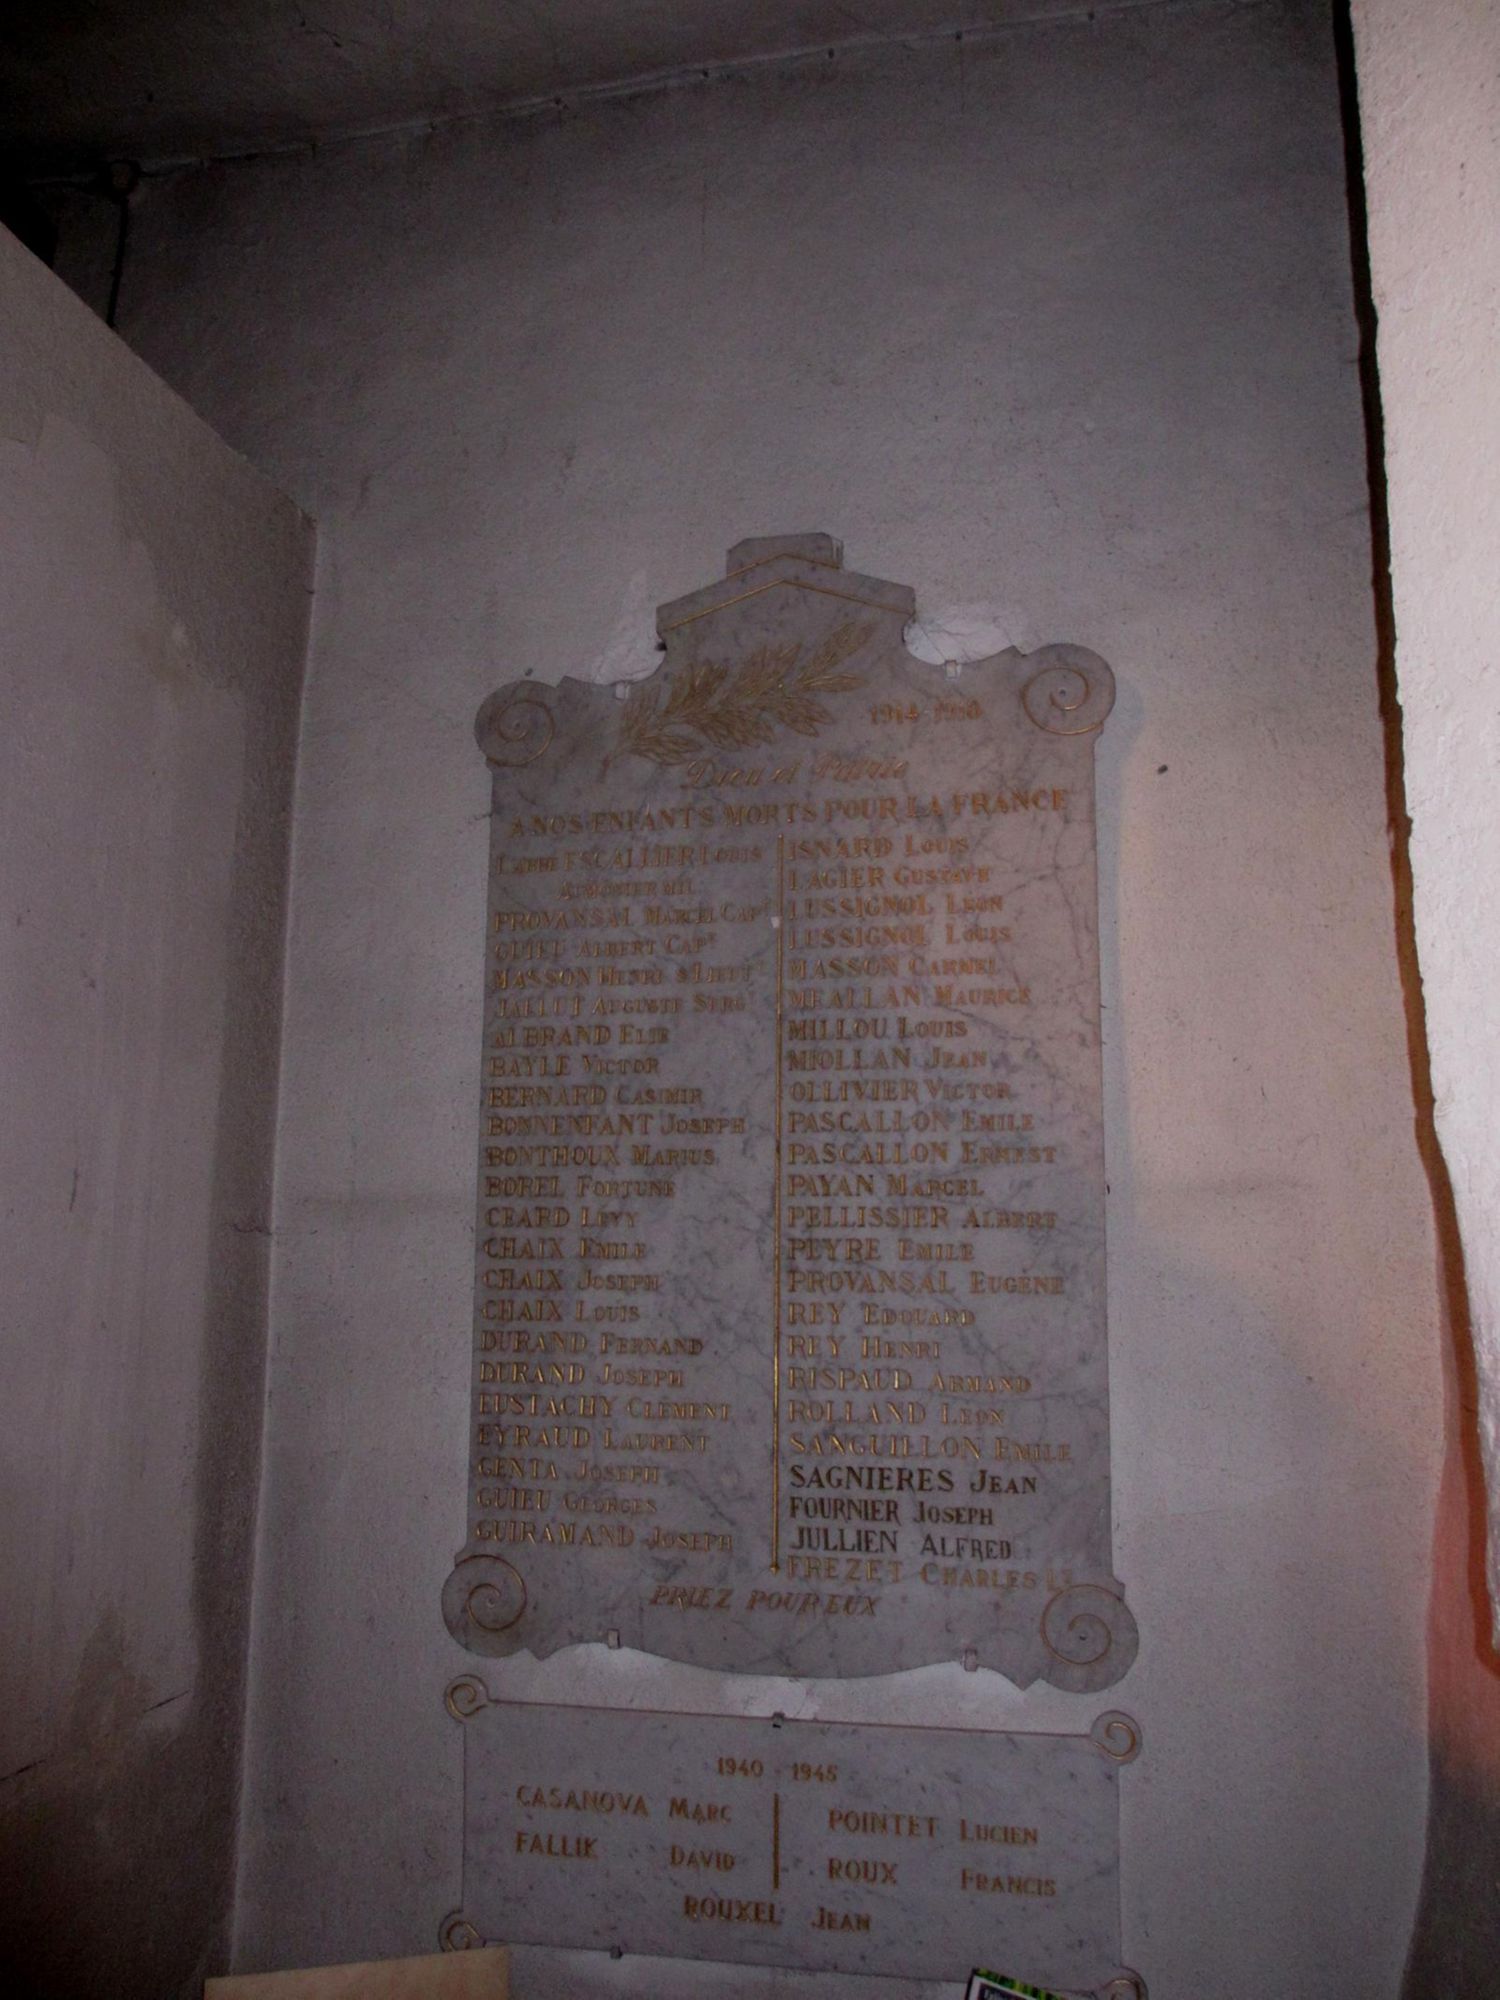 1914-1918
Dieu et Patrie
A NOS ENFANTS MORTS POUR LA FRANCE
L'ABBÉ ESCALLIER LOUIS
AUMONIER MIL.
PROVANSAL MARCEL CAPᵉ
GUIEU ALBERT CAPˡ
MASSON HENRI S/LIEUTᵗ
JAELUT AUGUSTE SERGᵗ
ALBRAND ELIE
BAYLE VICTOR
BERNARD CASIMIR
BONNENFANT JOSEPH
BONTHOUX MARIUS
BOREL FORTUNÉ
CEARD LÉVY
CHAIX EMILE
CHAIX JOSEPH
CHAIX LOUIS
DURAND FERNAND
DURAND JOSEPH
EUSTACHY CLÉMENT
EYRAUD LAURENT
GENTA JOSEPH
GUIEU GEORGES
GUIRAMAND JOSEPH
ISNARD LOUIS
LAGIER GUSTAVE
LUSSIGNOL LEON
LUSSIGNOL LOUIS
MASSON CARMEL
MEALLAN MAURICE
MILLOU LOUIS
MIOLLAN JEAN
OLLIVIER VICTOR
PASCALLON EMILE
PASCALLON ERNEST
PAYAN MARCEL
PELLISSIER ALBERT
PEYRE EMILE
PROVANSAL EUGÈNE
REY EDOUARD
REY HENRI
RISPAUD ARMAND
ROLLAND LEON
SANGUILLON EMILE
SAGNIERES JEAN
FOURNIER JOSEPH
JULLIEN ALFRED
FREZET CHARLES Lᵗ
PRIEZ POUR EUX
1940 - 1945
CASANOVA MARC
FALLIK DAVID
POINTET LUCIEN
ROUX FRANCIS
ROUXEL JEAN